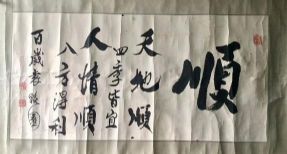 順
天地順
四季皆宜
人情順
八方得利
百歲